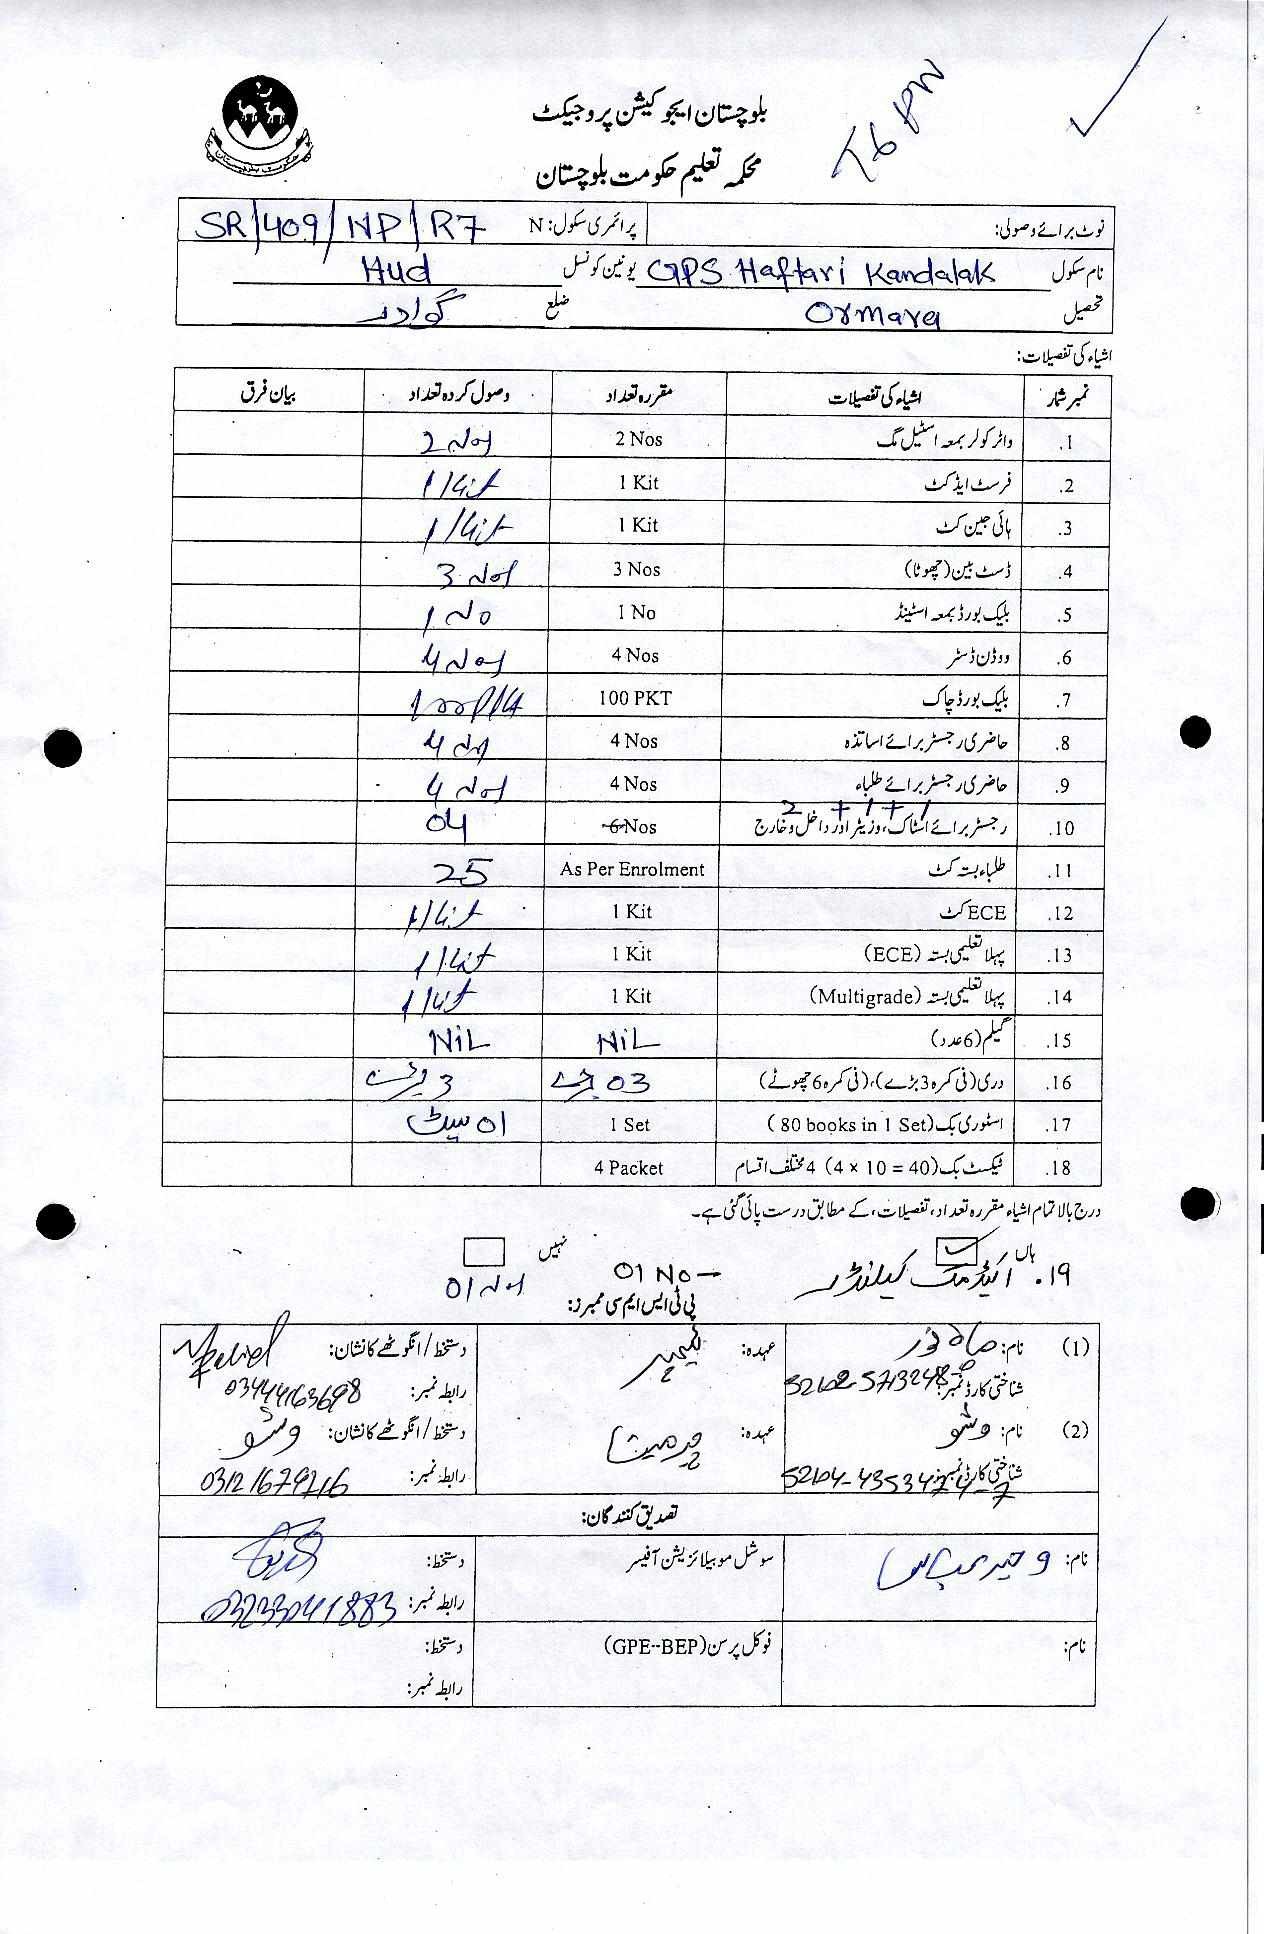 بلوچستان ایجوکیشن پروجیکٹ
محکمہ تعلیم حکومت بلوچستان
نوٹ برائے وصولی: پرائمری سکول: N SR/409/NP/R7
نام سکول GPS Haftari Kandalak یونین کونسل Hud
تحصیل Ormara ضلع گوادر
اشیاء کی تفصیلات:
نمبر شمار اشیاء کی تفصیلات مقررہ تعداد وصول کردہ تعداد بیان فرق
1. واٹر کولر بمعہ اسٹیل مگ 2 Nos 2 Nos
2. فرسٹ ایڈ کٹ 1 Kit 1 Kit
3. ہائی جین کٹ 1 Kit 1 Kit
4. ڈسٹ بین (چھوٹا) 3 Nos 3 Nos
5. بلیک بورڈ بمعہ اسٹینڈ 1 No 1 No
6. ووڈن ڈسٹر 4 Nos 4 Nos
7. بلیک بورڈ چاک 100 PKT 100 Pkt
8. حاضری رجسٹر برائے اساتذہ 4 Nos 4 Nos
9. حاضری رجسٹر برائے طلباء 4 Nos 4 Nos
2 + 1 + 1
10. رجسٹر برائے اسٹاک، وزیٹر اور داخل و خارج 6 Nos 04
11. طلباء بستہ کٹ As Per Enrolment 25
12. ECE کٹ 1 Kit 1 Kit
13. پہلا تعلیمی بستہ (ECE) 1 Kit 1 Kit
14. پہلا تعلیمی بستہ (Multigrade) 1 Kit 1 Kit
15. گیم (6 عدد) NiL NiL
16. دری (فی کمرہ 3 بڑے)، (فی کمرہ 6 چھوٹے) 03 3
17. اسٹوری بک (80 books in 1 Set) 1 Set 01 سیٹ
18. ٹیکسٹ بک (4 × 10 = 40) 4 مختلف اقسام 4 Packet
درج بالا تمام اشیاء مقررہ تعداد، تفصیلات، کے مطابق درست پائی گئی ہے۔
ہاں نہیں
19. اکیڈمک کیلنڈر 01 No 01 Nos
پی ٹی ایس ایم سی ممبرز:
(1) نام: ماہ نور عہدہ: ٹیچر دستخط / انگوٹھے کا نشان:
شناختی کارڈ نمبر: رابطہ نمبر: 03444163698
(2) نام: وشو عہدہ: دستخط / انگوٹھے کا نشان: وشو
شناختی کارڈ نمبر: رابطہ نمبر:
تصدیق کنندگان:
نام: سوشل موبیلائزیشن آفیسر دستخط:
رابطہ نمبر: 03233041883
نام: فوکل پرسن (GPE--BEP) دستخط:
رابطہ نمبر: